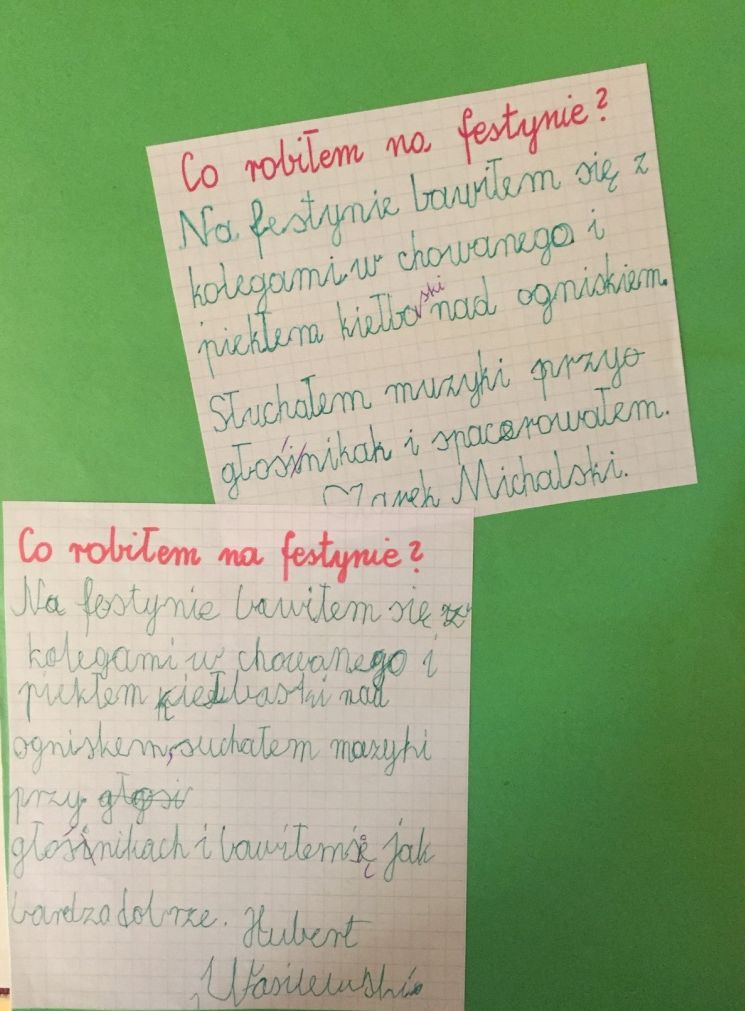 Co robiłem na festynie?
Na festynie bawiłem się z
kolegami w chowanego i
piekłem kiełbaski nad ogniskiem.
Słuchałem muzyki przyo
głośnikak i spacerowałem.
Marek Michalski.
Co robiłem na festynie?
Na festynie bawiłem się z
kolegami w chowanego i
piekłem kiełbaski nad
ogniskem, suchałem mazyki
przy głosi
głośnikach i bawiłem się jak
bardzo dobrze. Hubert
Wasilewski